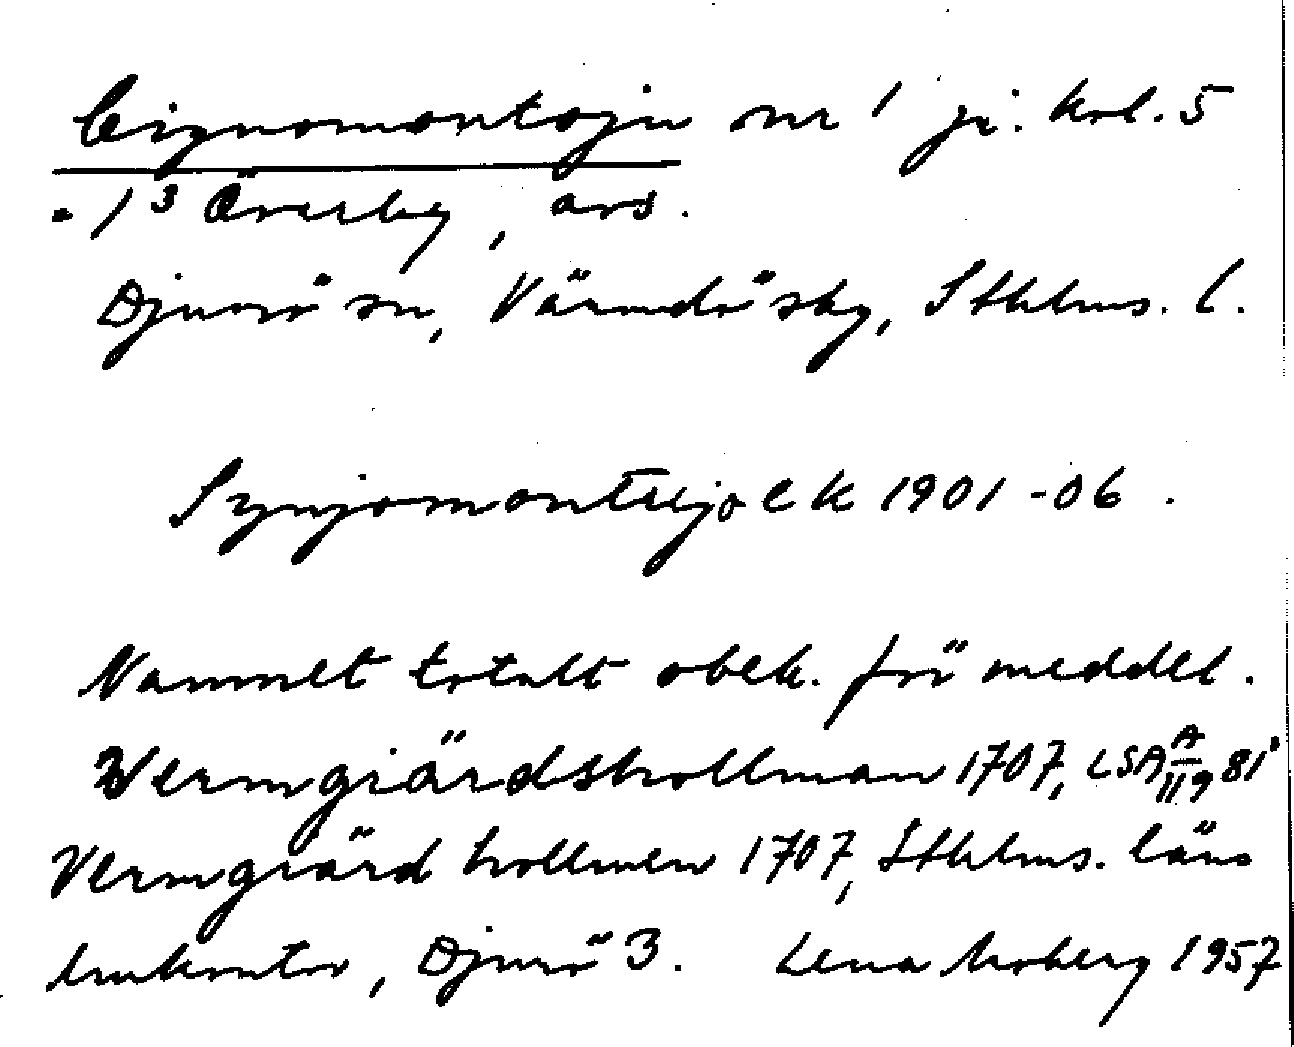 Cignomontoju nr 1 ji. kol. 5
= 1³ Överby, avs.
Djurö sn, Värmdö sky, Sthlms. l.
Synjomontujo ek 1901-06.
Namnet totalt obek. för meddel.
Wermgiärdshollman 1707, LSA A/II9 81
Vermgiärd hollmen 1707, Sthlms. läns
lmkontor, Djurö 3. Lena Moberg 1957